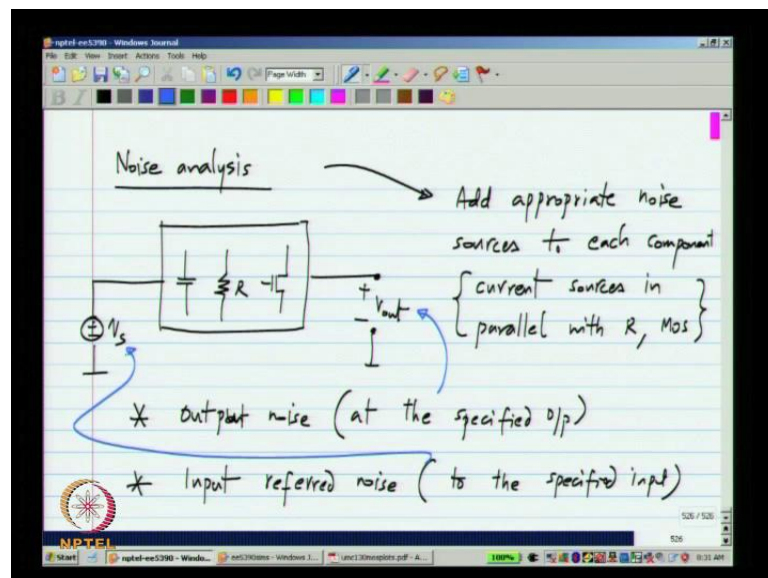 nptel-ee5390 - Windows Journal
File Edit View Insert Actions Tools Help
Page Width
B I
Noise analysis
Add appropriate noise
sources to each component
{current sources in
parallel with R, MOS}
R
+
Vout
-
Vs
* Output noise (at the specified O/P)
* Input referred noise (to the specified input)
526 / 526
526
NPTEL
Start
nptel-ee5390 - Windo...
ee5390sims - Windows J...
umc130mosplots.pdf - A...
100%
0:31 AM